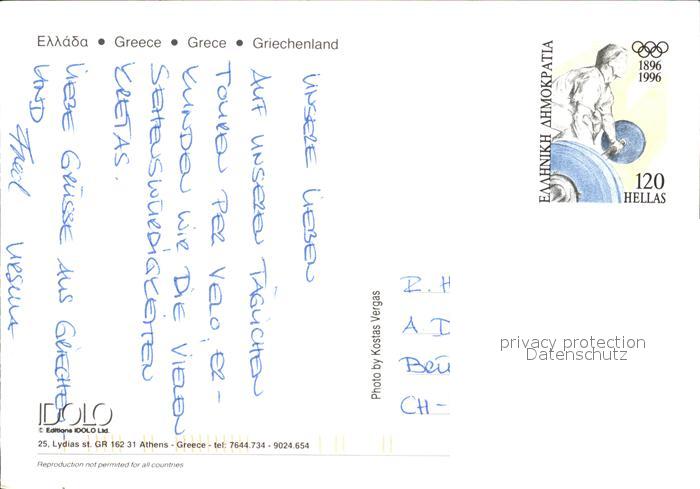 Ελλάδα • Greece • Grece • Griechenland
UNSERE LIEBEN
AUF UNSEREN TÄGLICHEN
TOUREN PER VELO, ER-
KUNDEN WIR DIE VIELEN
SEHENSWÜRDIGKEITEN
KRETAS.
LIEBE GRÜSSE AUS GRIECHEN-
UND
URSULA
ΕΛΛΗΝΙΚΗ ΔΗΜΟΚΡΑΤΙΑ
1896
1996
120
HELLAS
Photo by Kostas Vergas
R. H
A D
CH-
privacy protection
Datenschutz
IDOLO
© Editions IDOLO Ltd.
25, Lydias st. GR 162 31 Athens - Greece - tel: 7644.734 - 9024.654
Reproduction not permited for all countries